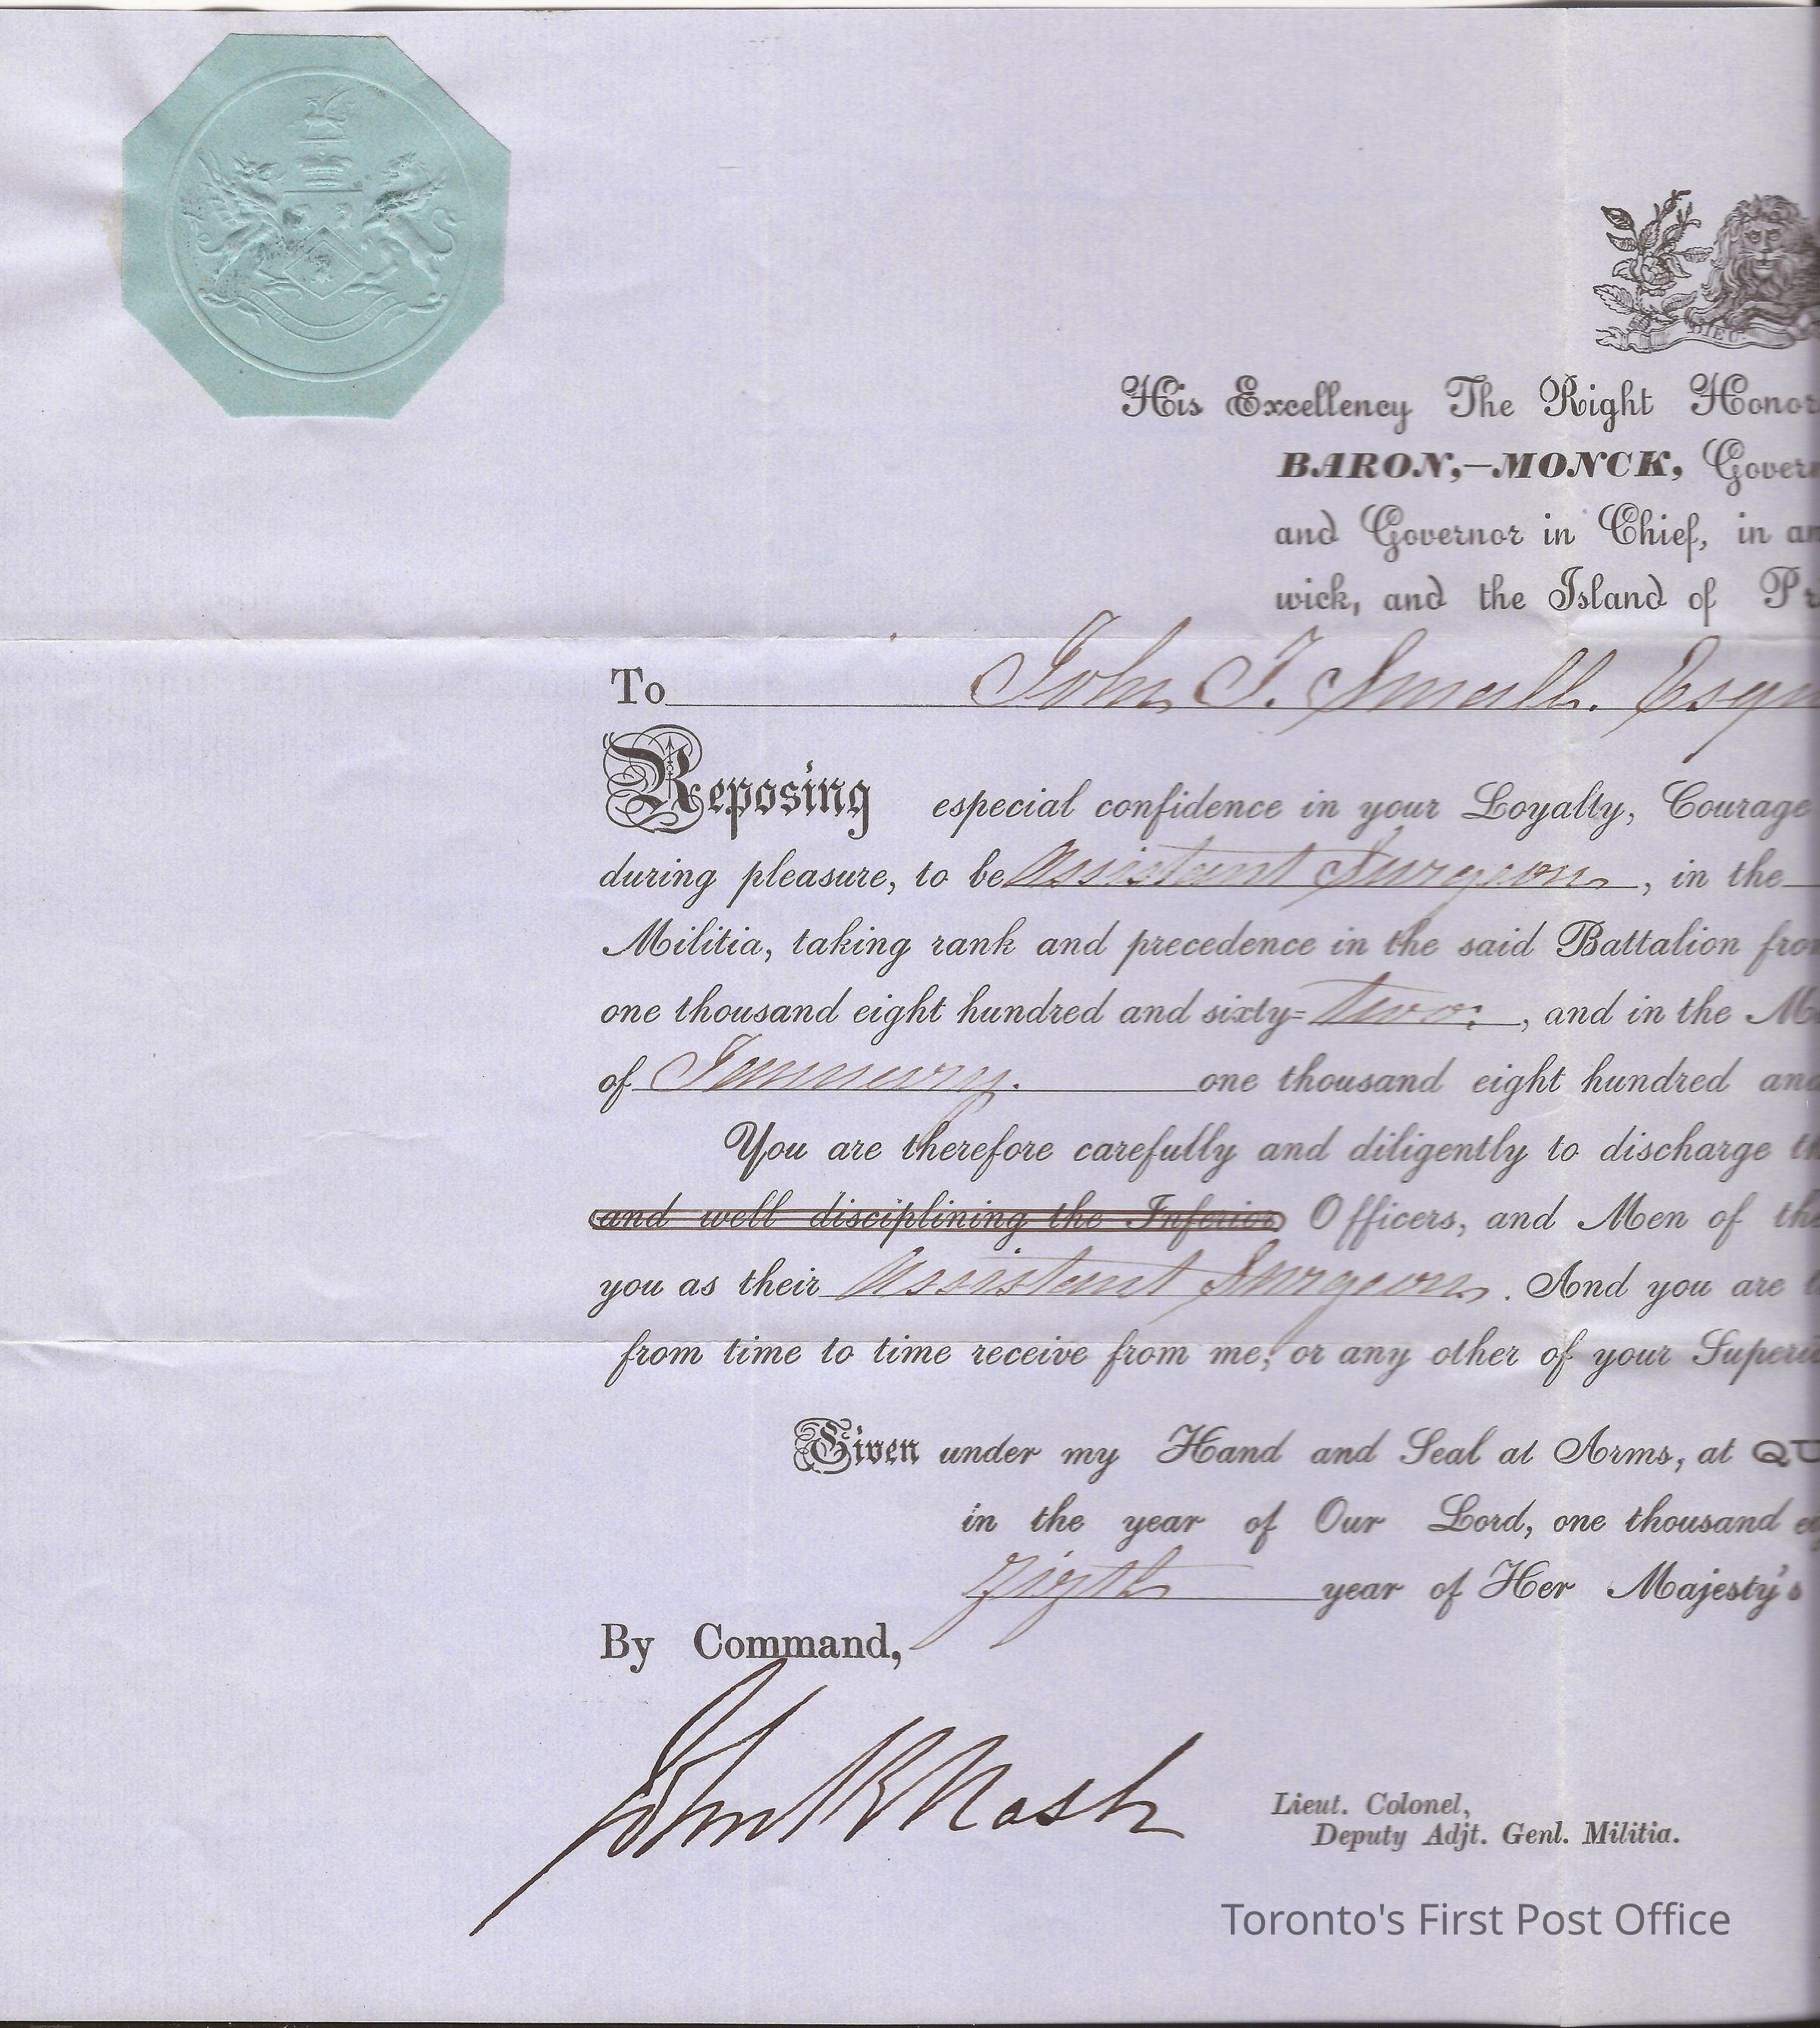 DIEU
His Excellency The Right Honor
BARON,—MONCK, Govern
and Governor in Chief, in an
wick, and the Island of Pr
To John T. Small. Esqu
Reposing especial confidence in your Loyalty, Courage
during pleasure, to be Assistant Surgeon, in the
Militia, taking rank and precedence in the said Battalion from
one thousand eight hundred and sixty=two, and in the M
of January. one thousand eight hundred and
You are therefore carefully and diligently to discharge th
and well disciplining the Inferior Officers, and Men of the
you as their Assistant Surgeon. And you are
from time to time receive from me, or any other of your Superi
Given under my Hand and Seal at Arms, at QU
in the year of Our Lord, one thousand ei
year of Her Majesty's
By Command,
John R Nash
Lieut. Colonel,
Deputy Adjt. Genl. Militia.
Toronto's First Post Office